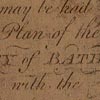 may be had
Plan of the
Y of BATH
with the